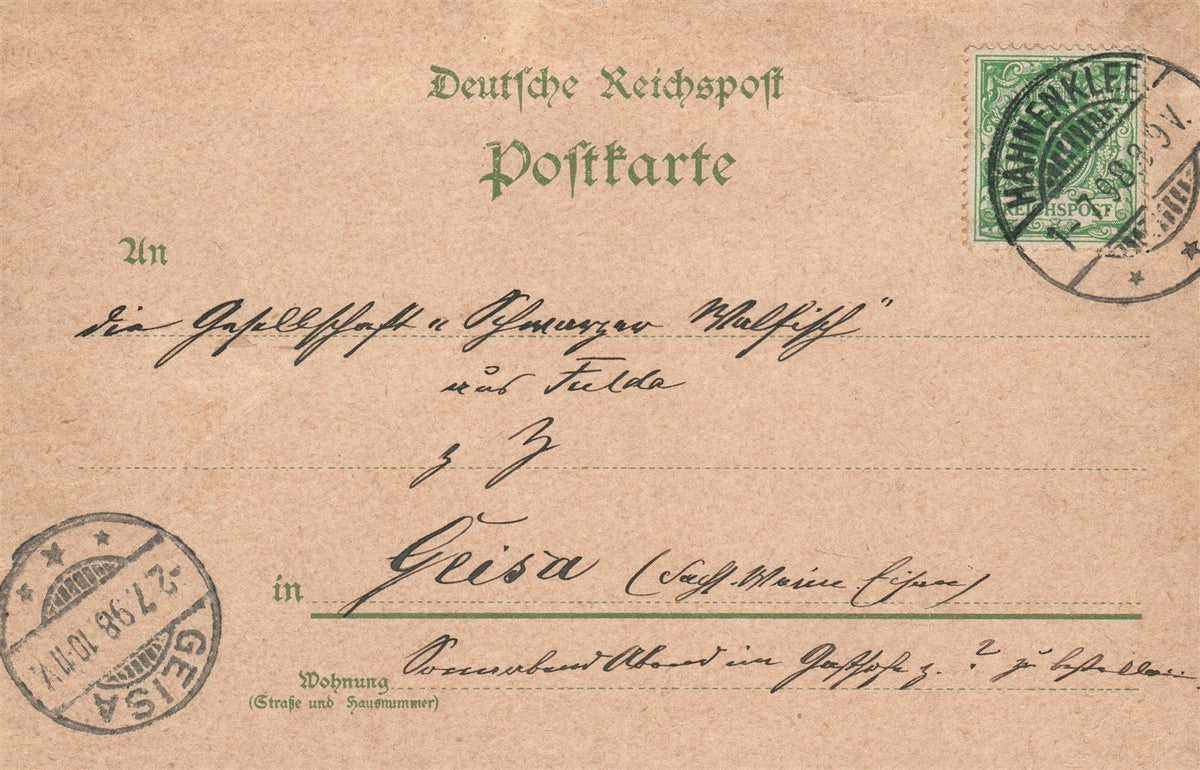 Deutsche Reichspost
Postkarte
HAHNENKLEE
1-7.98. 8-9V.
REICHSPOST
An
die Gesellschaft "Schwarzer Walfisch"
aus Fulda
z Z
in Geisa (Sachs. Weim Eisen)
Wohnung
(Straße und Hausnummer)
Sonnabend Abend im Gasthofe z. ? zu bestellen
-2.7.98 10-11V.
GEISA